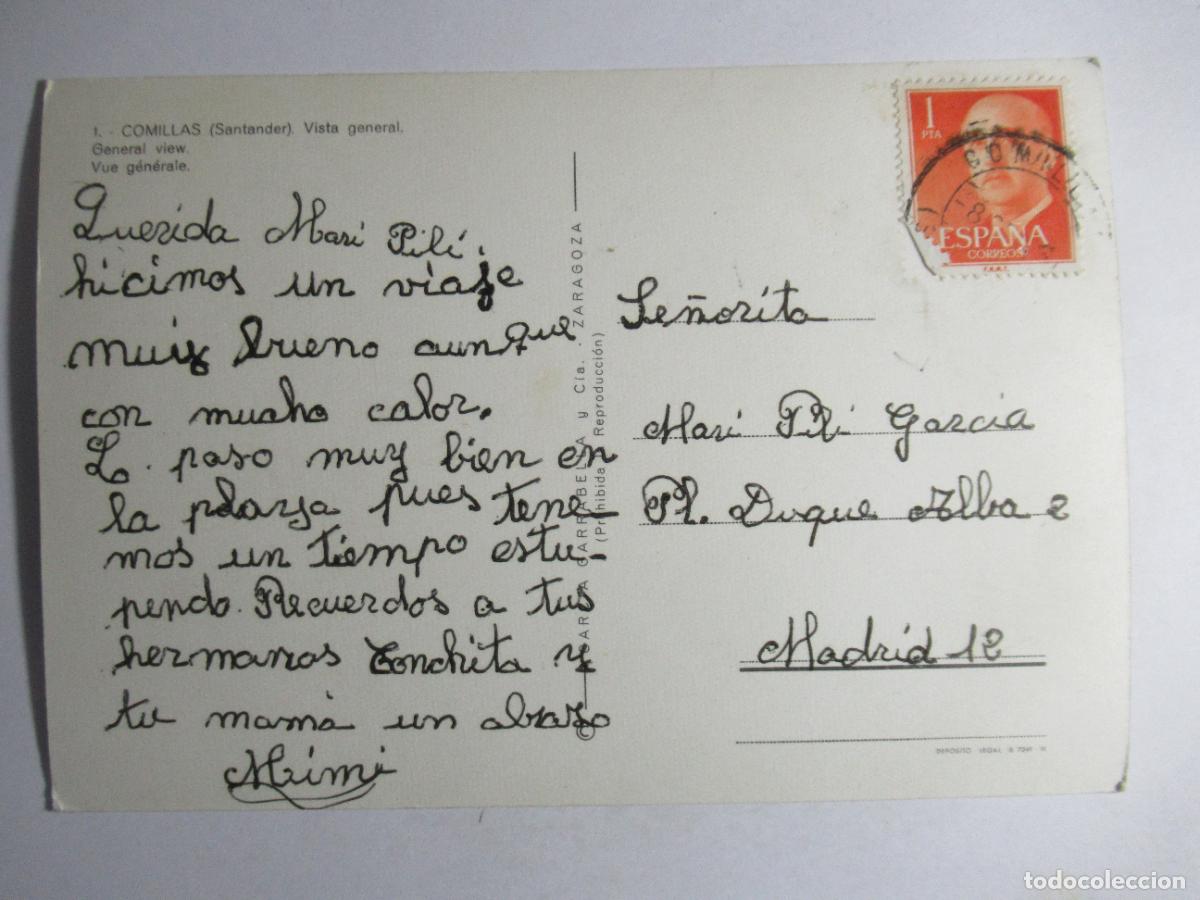 1. - COMILLAS (Santander). Vista general.
General view.
Vue générale.
Querida Mari Pili:
hicimos un viaje
muy bueno aunque
con mucho calor.
Lo paso muy bien en
la playa pues tene-
mos un tiempo estu-
pendo. Recuerdos a tus
hermanas Conchita y
tu mamá un abrazo
Mimi
GARRABELLA y Cía. - ZARAGOZA
(Prohibida Reproducción)
1
PTA
ESPAÑA
CORREOS
COMILLAS
Señorita
Mari Pili García
Pl. Duque Alba 2
Madrid 12
DEPOSITO LEGAL B. 7041
todocoleccion